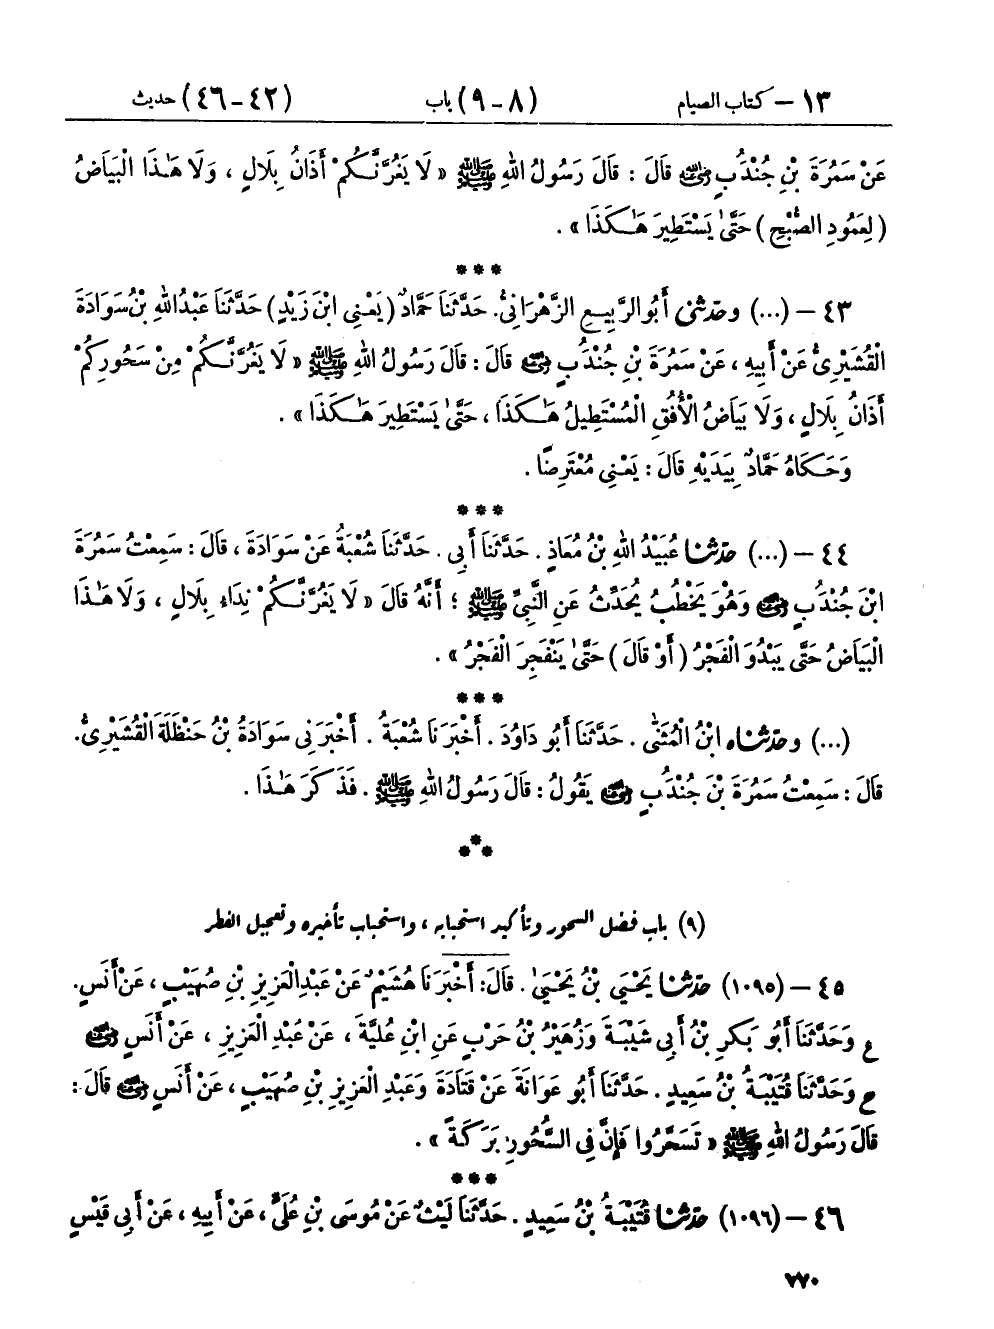 ١٣ – كتاب الصيام (٨ - ٩) باب (٤٢-٤٦) حديث
عَنْ سَمُرَةَ بْنِ جُنْدُبٍ رضي الله عنه قَالَ : قَالَ رَسُولُ اللهِ ﷺ « لَا يَغُرَّنَّكُمْ أَذَانُ بِلَالٍ ، وَلَا هَٰذَا الْبَيَاضُ
( لِعَمُودِ الصُّبْحِ ) حَتَّىٰ يَسْتَطِيرَ هَٰكَذَا » .
***
٤٣ – (...) وحَدَّثَنِي أَبُو الرَّبِيعِ الزَّهْرَانِيُّ. حَدَّثَنَا حَمَّادٌ ( يَعْنِي ابْنَ زَيْدٍ ) حَدَّثَنَا عَبْدُ اللهِ بْنُ سَوَادَةَ
الْقُشَيْرِيُّ عَنْ أَبِيهِ ، عَنْ سَمُرَةَ بْنِ جُنْدُبٍ رضي الله عنه قَالَ : قَالَ رَسُولُ اللهِ ﷺ « لَا يَغُرَّنَّكُمْ مِنْ سَحُورِكُمْ
أَذَانُ بِلَالٍ ، وَلَا بَيَاضُ الْأُفُقِ الْمُسْتَطِيلُ هَٰكَذَا ، حَتَّىٰ يَسْتَطِيرَ هَٰكَذَا » .
وَحَكَاهُ حَمَّادٌ بِيَدَيْهِ قَالَ : يَعْنِي مُعْتَرِضًا .
***
٤٤ – (...) حَدَّثَنَا عُبَيْدُ اللهِ بْنُ مُعَاذٍ . حَدَّثَنَا أَبِي . حَدَّثَنَا شُعْبَةُ عَنْ سَوَادَةَ ، قَالَ : سَمِعْتُ سَمُرَةَ
ابْنَ جُنْدُبٍ رضي الله عنه وَهُوَ يَخْطُبُ يُحَدِّثُ عَنِ النَّبِيِّ ﷺ ؛ أَنَّهُ قَالَ « لَا يَغُرَّنَّكُمْ نِدَاءُ بِلَالٍ ، وَلَا هَٰذَا
الْبَيَاضُ حَتَّى يَبْدُوَ الْفَجْرُ ( أَوْ قَالَ ) حَتَّىٰ يَنْفَجِرَ الْفَجْرُ » .
***
(...) وحَدَّثَنَاه ابْنُ الْمُثَنَّىٰ . حَدَّثَنَا أَبُو دَاوُدَ . أَخْبَرَنَا شُعْبَةُ . أَخْبَرَنِي سَوَادَةُ بْنُ حَنْظَلَةَ الْقُشَيْرِيُّ.
قَالَ : سَمِعْتُ سَمُرَةَ بْنَ جُنْدُبٍ رضي الله عنه يَقُولُ : قَالَ رَسُولُ اللهِ ﷺ . فَذَكَرَ هَٰذَا .
***
(٩) باب فضل السحور وتأكيد استحبابه ، واستحباب تأخيره وتعجيل الفطر
٤٥ – (١٠٩٥) حَدَّثَنَا يَحْيَى بْنُ يَحْيَىٰ . قَالَ: أَخْبَرَنَا هُشَيْمٌ عَنْ عَبْدِ الْعَزِيزِ بْنِ صُهَيْبٍ ، عَنْ أَنَسٍ.
ع وَحَدَّثَنَا أَبُو بَكْرِ بْنُ أَبِي شَيْبَةَ وَزُهَيْرُ بْنُ حَرْبٍ عَنِ ابْنِ عُلَيَّةَ ، عَنْ عَبْدِ الْعَزِيزِ ، عَنْ أَنَسٍ رضي الله عنه
ح وَحَدَّثَنَا قُتَيْبَةُ بْنُ سَعِيدٍ . حَدَّثَنَا أَبُو عَوَانَةَ عَنْ قَتَادَةَ وَعَبْدِ الْعَزِيزِ بْنِ صُهَيْبٍ ، عَنْ أَنَسٍ رضي الله عنه قَالَ :
قَالَ رَسُولُ اللهِ ﷺ « تَسَحَّرُوا فَإِنَّ فِي السُّحُورِ بَرَكَةً » .
***
٤٦ – (١٠٩٦) حَدَّثَنَا قُتَيْبَةُ بْنُ سَعِيدٍ . حَدَّثَنَا لَيْثٌ عَنْ مُوسَى بْنِ عُلَيٍّ ، عَنْ أَبِيهِ ، عَنْ أَبِي قَيْسٍ
٧٧٠